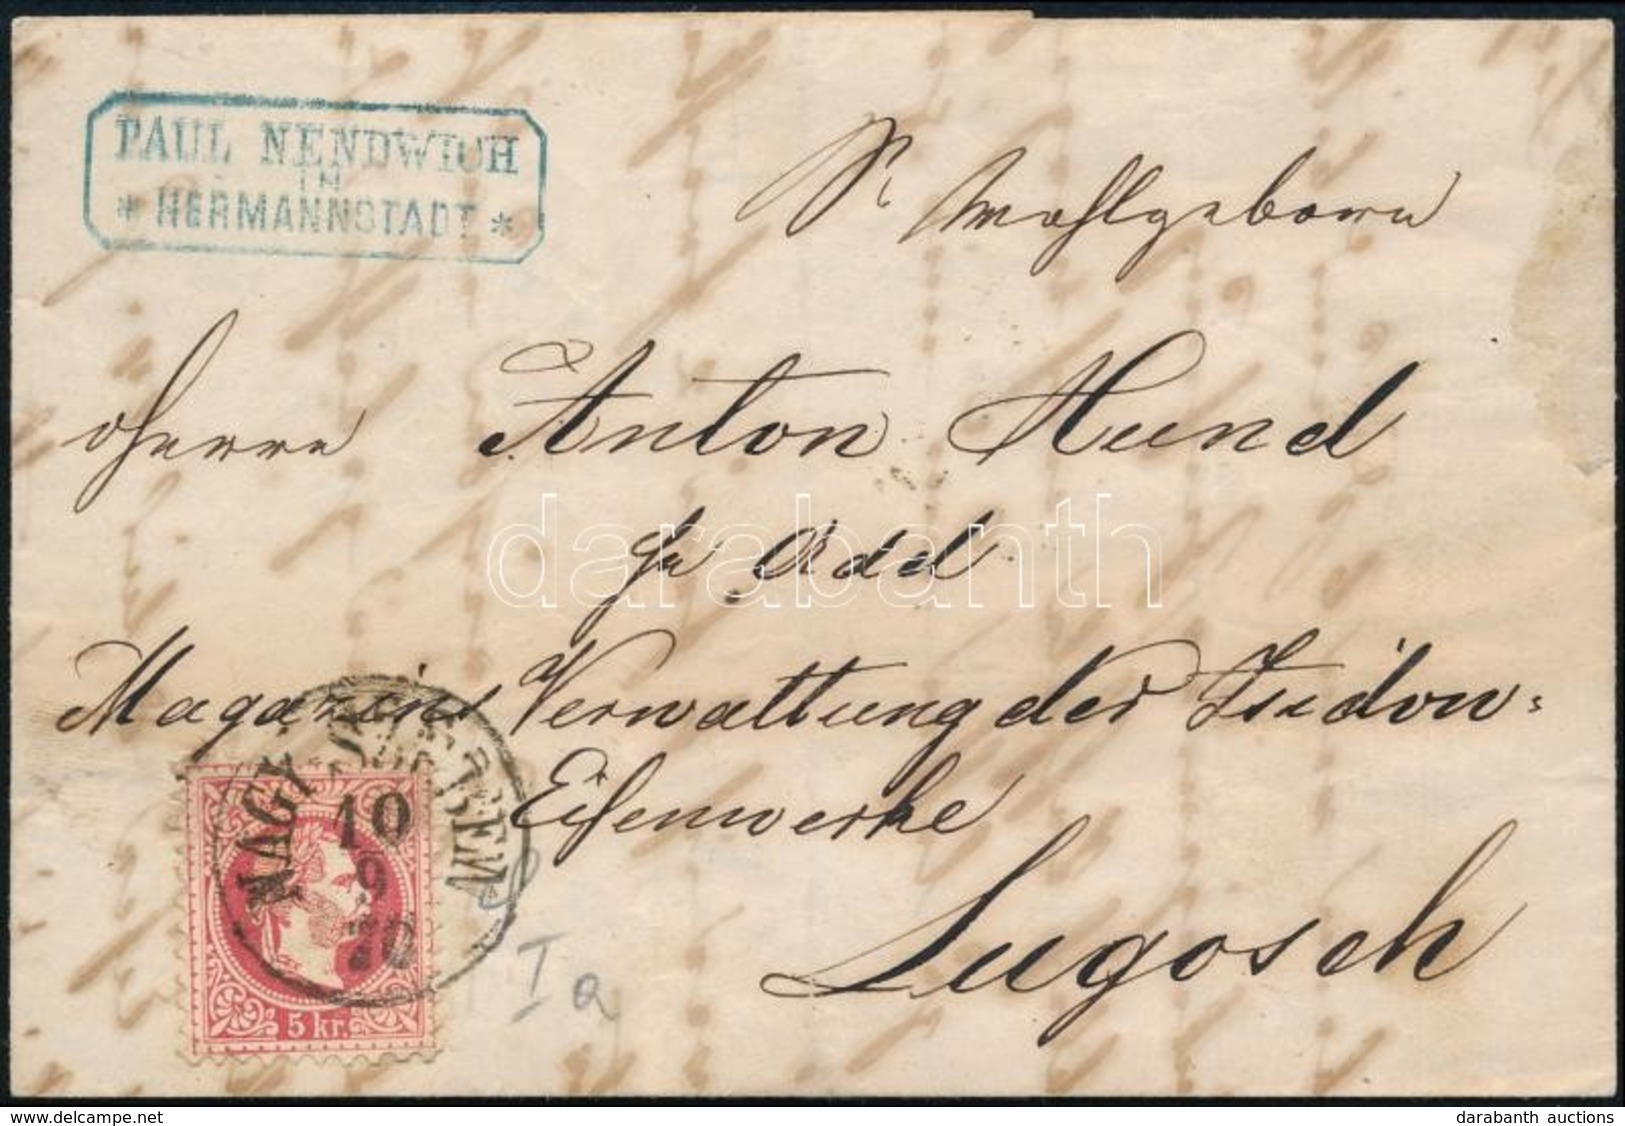 PAUL NENDWICH
IN
* HERMANNSTADT *
Sr Wohlgeborn
Herrn Anton Hund
darabanth
Magazins Verwaltung der
Eisenwerke
Lugosch
MAGY SZEBEN
10
9
70
5 kr.
I a
delcampe.net
darabanth auctions